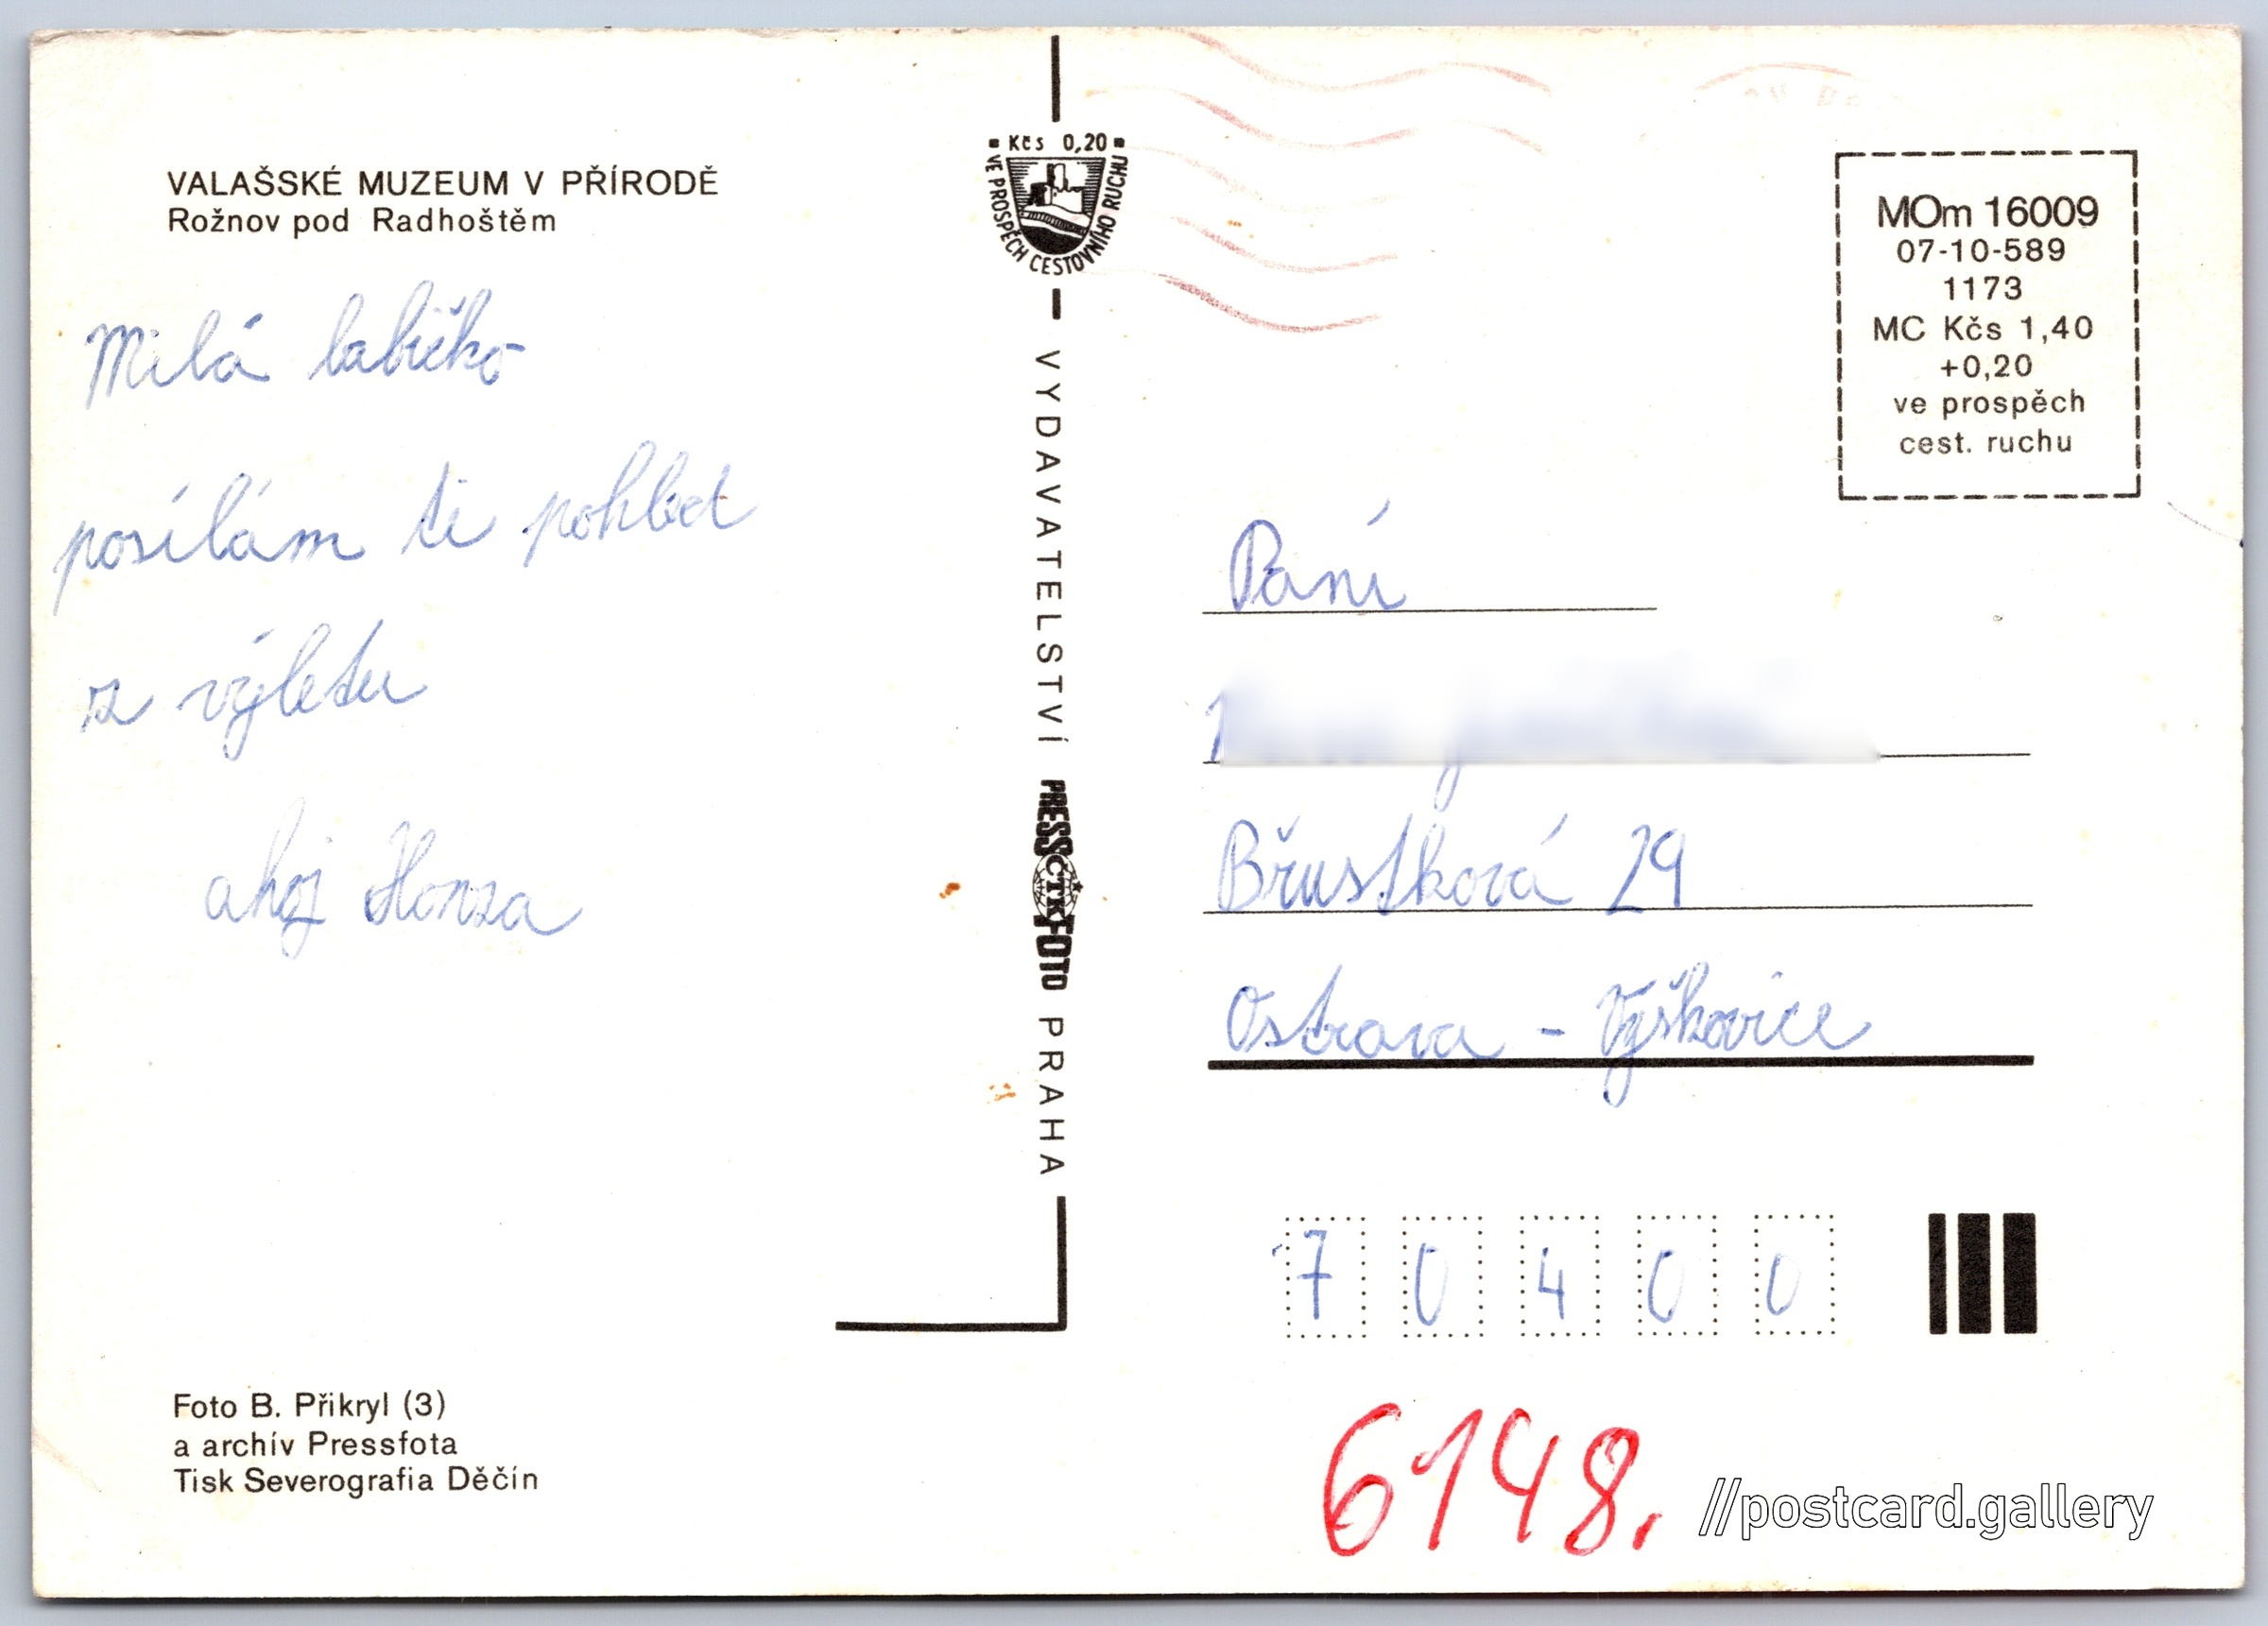 VALAŠSKÉ MUZEUM V PŘÍRODĚ
Rožnov pod Radhoštěm
Milá babičko
posílám ti pohled
z výletu
ahoj Honza
Foto B. Přikryl (3)
a archív Pressfota
Tisk Severografia Děčín
Kčs 0,20
VE PROSPĚCH CESTOVNÍHO RUCHU
VYDAVATELSTVÍ PRESSFOTO PRAHA
ČTK
MOm 16009
07-10-589
1173
MC Kčs 1,40
+0,20
ve prospěch
cest. ruchu
Paní
Břustková 29
Ostrava - Výškovice
70400
6148.
//postcard.gallery